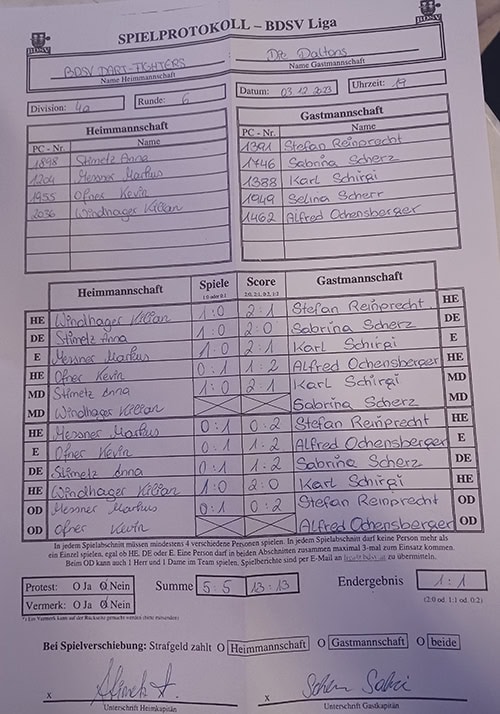 BDSV
SPIELPROTOKOLL – BDSV Liga
BDSV
BDSV DART-FIGHTERS
Die Daltons
Name Heimmannschaft
Name Gastmannschaft
Division: 4a Runde: 6 Datum: 03.12.2023 Uhrzeit: 19
Heimmannschaft
Gastmannschaft
PC - Nr. Name
PC - Nr. Name
1898 Stimetz Anna
1391 Stefan Reinprecht
1204 Messner Markus
1746 Sabrina Scherz
1955 Ofner Kevin
1388 Karl Schirgi
2036 Windhager Kilian
1949 Selina Scherr
1462 Alfred Ochensberger
Heimmannschaft Spiele Score Gastmannschaft
1:0 oder 0:1 2:0, 2:1, 0:2, 1:2
HE Windhager Kilian 1:0 2:1 Stefan Reinprecht HE
DE Stimetz Anna 1:0 2:0 Sabrina Scherz DE
E Messner Markus 1:0 2:1 Karl Schirgi E
HE Ofner Kevin 0:1 1:2 Alfred Ochensberger HE
MD Stimetz Anna 1:0 2:1 Karl Schirgi MD
MD Windhager Kilian Sabrina Scherz MD
HE Messner Markus 0:1 0:2 Stefan Reinprecht HE
E Ofner Kevin 0:1 1:2 Alfred Ochensberger E
DE Stimetz Anna 0:1 1:2 Sabrina Scherz DE
HE Windhager Kilian 1:0 2:0 Karl Schirgi HE
OD Messner Markus 0:1 0:2 Stefan Reinprecht OD
OD Ofner Kevin Alfred Ochensberger OD
In jedem Spielabschnitt müssen mindestens 4 verschiedene Personen spielen. In jedem Spielabschnitt darf keine Person mehr als
ein Einzel spielen, egal ob HE, DE oder E. Eine Person darf in beiden Abschnitten zusammen maximal 3-mal zum Einsatz kommen.
Beim OD kann auch 1 Herr und 1 Dame im Team spielen. Spielberichte sind per E-Mail an zu übermitteln.
Protest: O Ja O Nein Summe 5:5 13:13 Endergebnis 1:1
Vermerk: O Ja O Nein (2:0 od. 1:1 od. 0:2)
*) Ein Vermerk kann auf der Rückseite gemacht werden
Bei Spielverschiebung: Strafgeld zahlt O Heimmannschaft O Gastmannschaft O beide
x x
Unterschrift Heimkapitän Unterschrift Gastkapitän